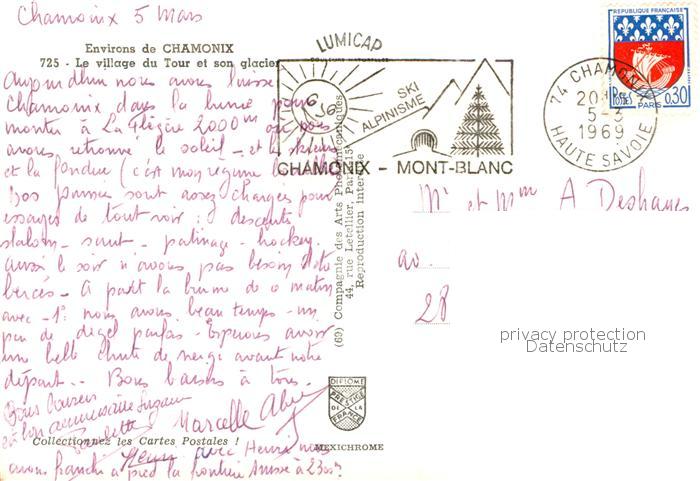 Chamonix 5 Mars
Environs de CHAMONIX
725 - Le village du Tour et son glacier
Aujourd'hui nous avons laissé
Chamonix dans la brume pour
monter à La Flégère 2000m où nous
avons retrouvé le soleil - et le ski
et la fondue (c'est mon régime
Nos journées sont assez chargées pour
essayer de tout voir : descente
slalom - saut - patinage - hockey.
aussi le soir n'avons pas besoin d'être
bercés - A part la brume de ce matin
avec -1° nous avons beau temps - un
peu de dégel parfois - Espérons avoir
une belle chute de neige avant notre
départ -. Bons baisers à tous.
Marcelle
Henri avec Henri nous
avons franchi à pied la frontière Suisse à 2300m
Collectionnez les Cartes Postales !
MEXICHROME
DIPLOME
PRESTIGE
DE LA
FRANCE
(69) Compagnie des Arts Photomécaniques
44, rue Letellier, Paris-15e
Reproduction Interdite
LUMICAP
SKI
ALPINISME
CHAMONIX - MONT-BLANC
74 CHAMONIX
5-3
1969
HAUTE SAVOIE
REPUBLIQUE FRANCAISE
POSTES
0,30
PARIS
Mr et Mme A Deshayes
av.
28
privacy protection
Datenschutz